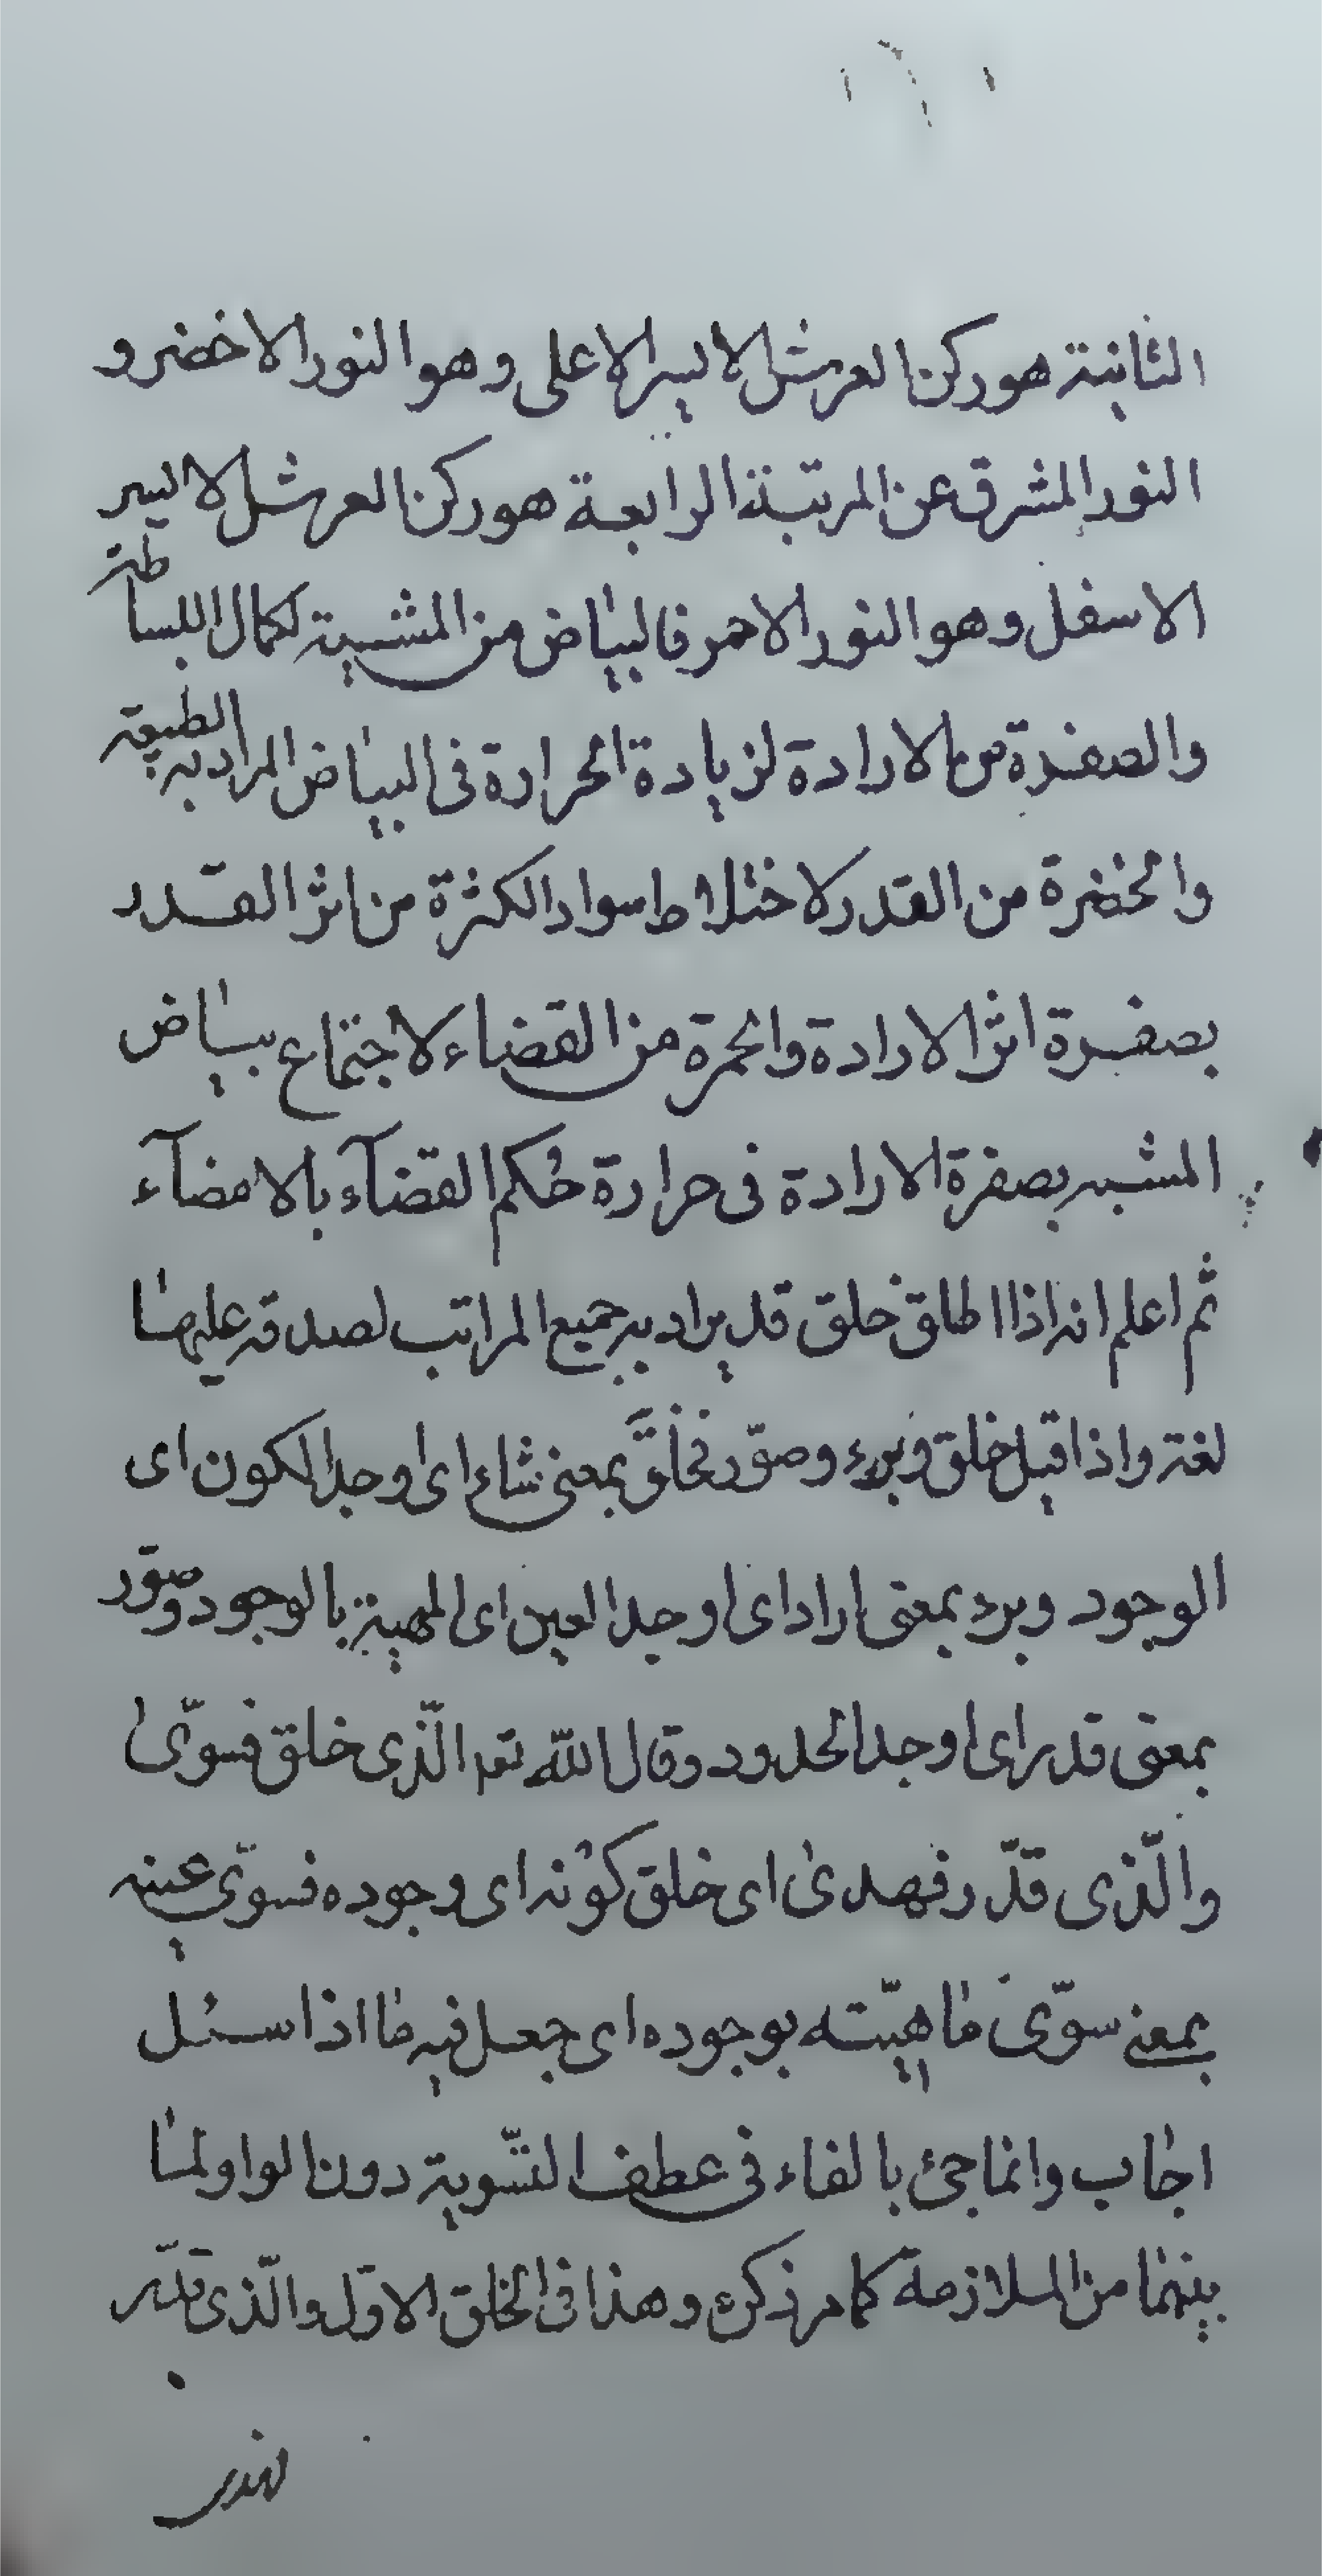 الثانية هو ركن العرش الايسر الاعلى وهو النور الاخضر و
النور المشرق عن المرتبة الرابعة هو ركن العرش الايسر
الاسفل وهو النور الاحمر فالبياض من المشية لكمال البساطة
والصفرة من الارادة لزيادة الحرارة فى البياض المراد به الطبيعة
والخضرة من القدر لاختلاط سواد الكثرة من اثر القدر
بصفرة اثر الارادة والحمرة من القضاء لاجتماع بياض
المشية بصفرة الارادة فى حرارة حُكم القضآء بالامضآء
ثم اعلم انه اذا اطلق خلق قد يراد به جميع المراتب لصدقه عليها
لغة واذا قيل خلق وبرء وصوّر فخلق بمعنى شاء اى اوجد الكون اى
الوجود وبرء بمعنى اراد اى اوجد العين اى المهية بالوجود وصوّر
بمعنى قدر اى اوجد الحدود وقال اللّه تعا الّذى خلق فسوّى
والّذى قدّر فهدى اى خلق كونه اى وجوده فسوّى عينه
بمعنى سوّى ماهيّته بوجوده اى جعل فيه ما اذا سئل
اجاب وانما جئ بالفاء فى عطف التّسوية دون الواو لما
بينهما من الملازمة كما مر ذكره وهذا فى الخلق الاوّل والّذى قدّر
فهدى